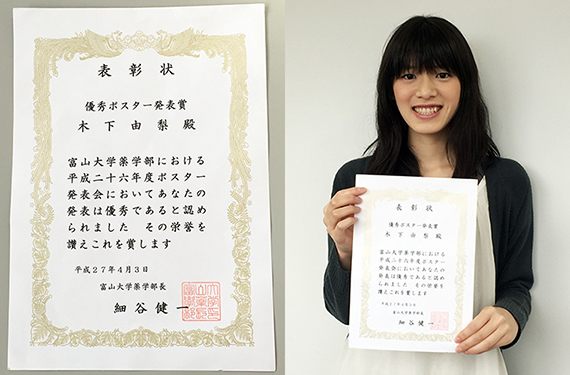 表彰状
優秀ポスター発表賞
木下由梨殿
富山大学薬学部における
平成二十六年度ポスター
発表会においてあなたの
発表は優秀であると認め
られました その栄誉を
讃えこれを賞します
平成27年4月3日
富山大学薬学部長
細谷健一
表彰状
優秀ポスター発表賞
木下由梨殿
富山大学薬学部における
平成二十六年度ポスター
発表会においてあなたの
発表は優秀であると認め
られました その栄誉を
讃えこれを賞します
平成27年4月3日
富山大学薬学部長
細谷健一